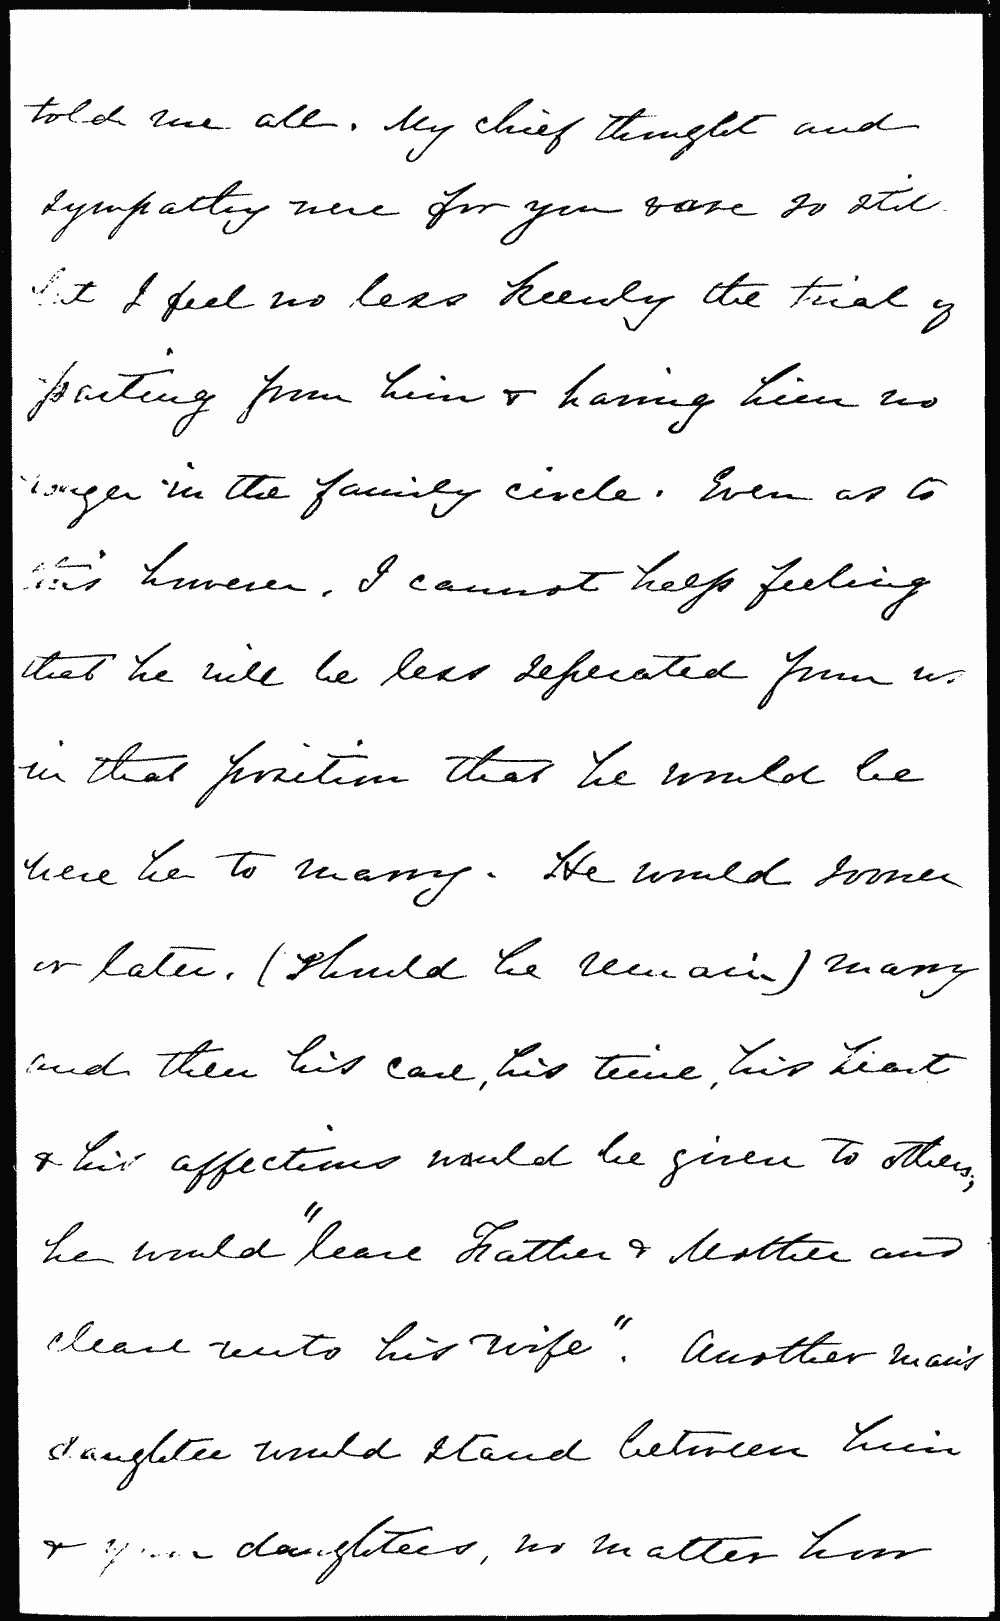 told me all. My chief thought and
sympathy were for you & are so still
but I feel no less keenly the trial of
parting from him & having him no
longer in the family circle. Even as to
this however, I cannot help feeling
that he will be less seperated from us
in that position that he would be
were he to marry. He would sooner
or later, (should he remain) marry
and then his care, his time, his heart
& his affections would be given to others;
he would "leave Father & Mother and
cleave unto his wife". Another man's
daughter would stand between him
& your daughters, no matter how